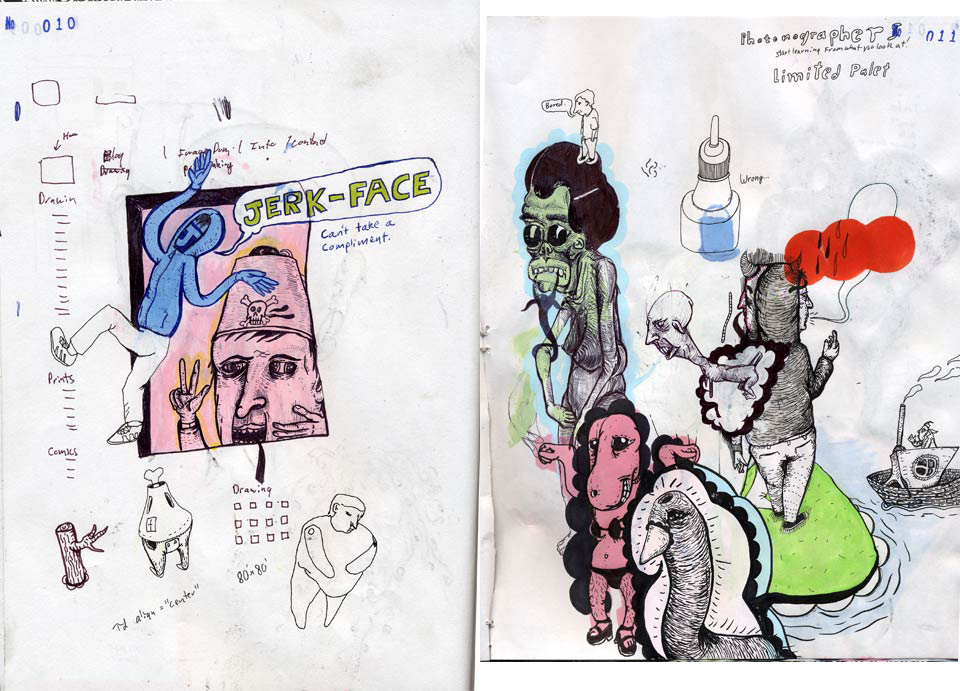 No 010
Hum
Blog
Drawing
1 Image Dump. 1 Info 1 control
Drawin
JERK-FACE
Can't take a
compliment.
Prints
Comics
Drawing
80x80
Td align = "center"
011
Photonographers
Start learning from what you look at!
Limited Palet
Bored.
Wrong